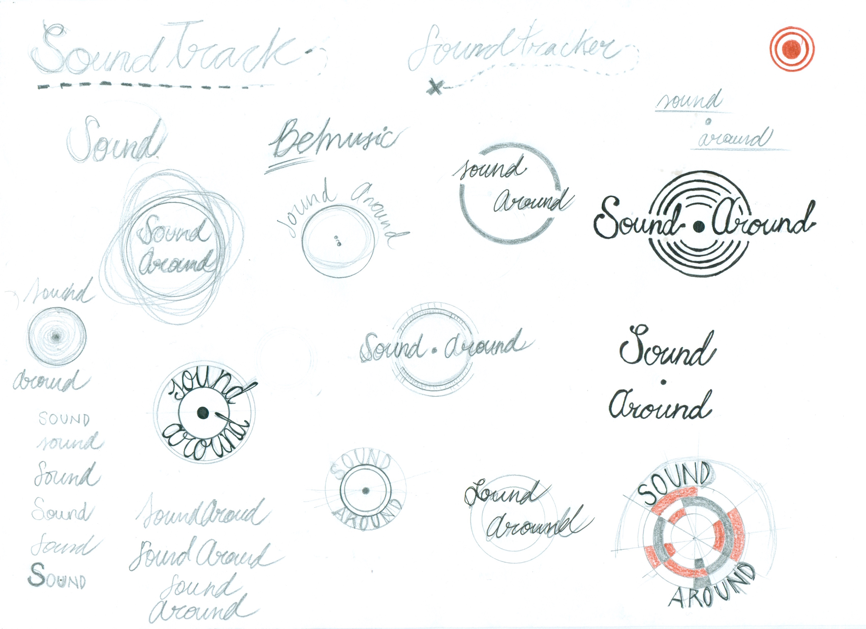 SoundTrack
Soundtracker
sound
around
Sound
Bemusic
Sound
Around
Sound Around
sound
Around
Sound Around
sound
around
Sound around
Sound
Around
sound
around
SOUND
sound
Sound
Sound
Sound
SOUND
SOUND
AROUND
Sound
around
SOUND
AROUND
SoundAroud
Sound Around
Sound
around